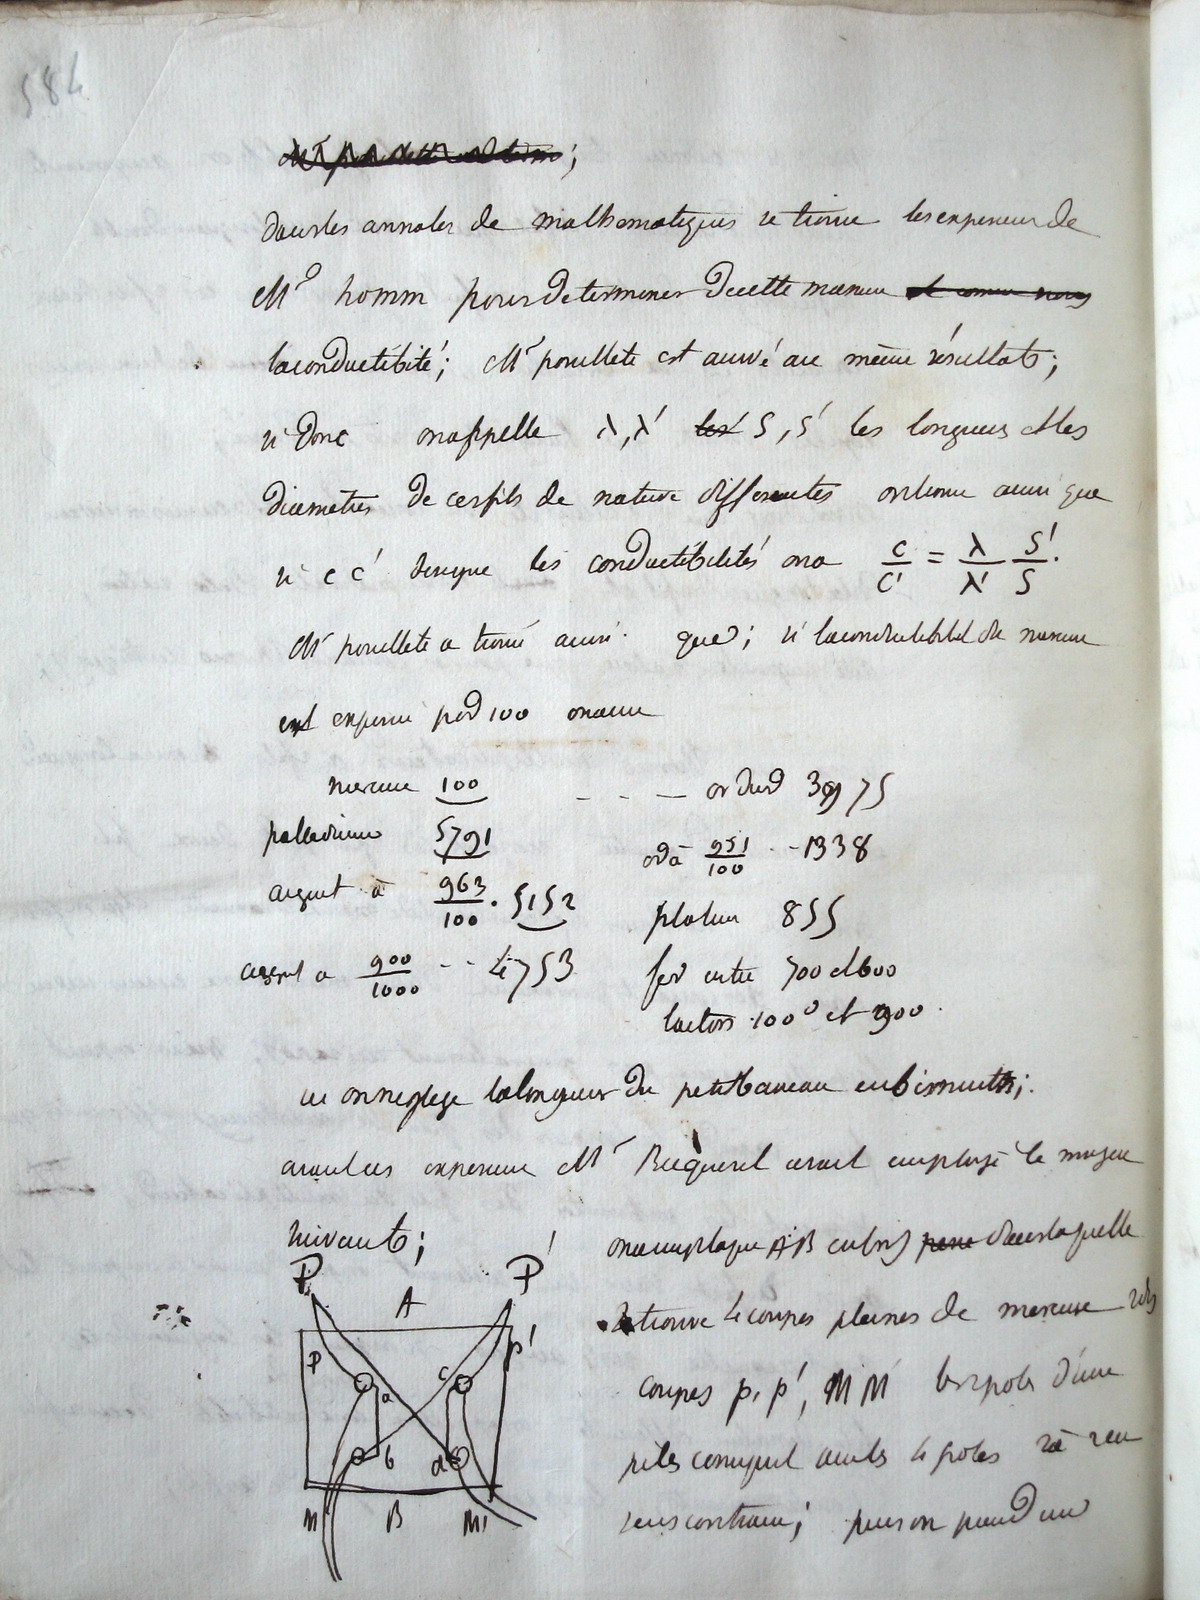 584
dans les annales de mathematiques se trouve les experience de
Mr homm pour determiner de cette maniere
la conductibité; Mr pouillete est arrivé au même résultats;
si donc on appelle λ, λ' S, S' les longueurs et les
diametres de ces fils de nature differentes on trouve aussi que
si c c' designe les conductibilités on a c/c' = λ/λ' S'/S.
Mr pouillete a trouvé aussi que; si la conductibilité du mercure
est exprimé par 100 on aura
mercure 100 - - - or dur 3975
palladium 5791
or à 951/100 - - 1338
argent à 963/100 . 5152
platine 855
argent a 900/1000 - - 4753
fer entre 700 et 600
laiton 100° et 900.
ici on neglige la longueur du petit barreau en bismuth;
avant ces experience Mr Becquerel avait employé le moyen
suivant;
P P'
A
p p'
a c
b d
M B M'
on a une plaque AB en bois dans laquelle
se trouve 4 coupes pleines de mercure
coupes p, p', M M' les 2 poles d'une
piles comuniquent avec les 4 poles 2 à 2 en
sens contraire; puis on prend un